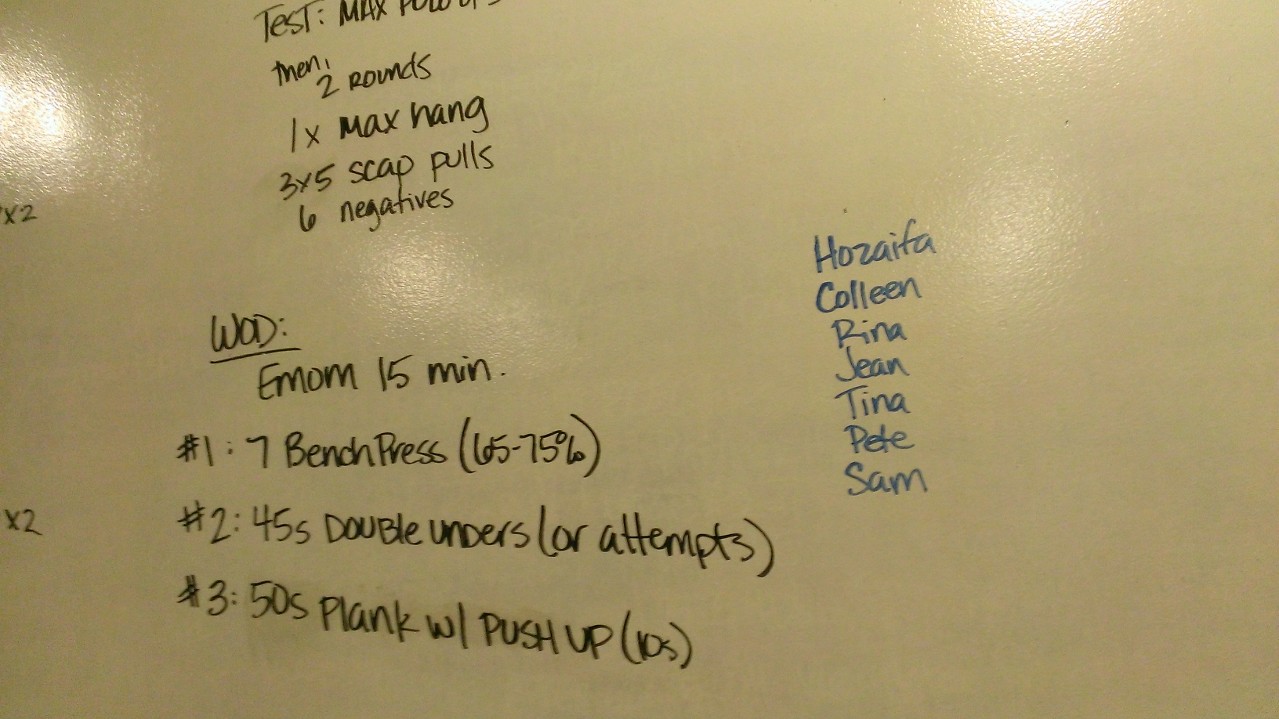 Test: MAX PULL UPS
then,
2 ROUNDS
1x Max hang
3x5 scap pulls
6 negatives
x2
WOD:
Emom 15 min.
#1: 7 Bench Press (65-75%)
#2: 45s Double unders (or attempts)
x2
#3: 50s Plank w/ PUSH UP (10s)
Hozaifa
Colleen
Rina
Jean
Tina
Pete
Sam